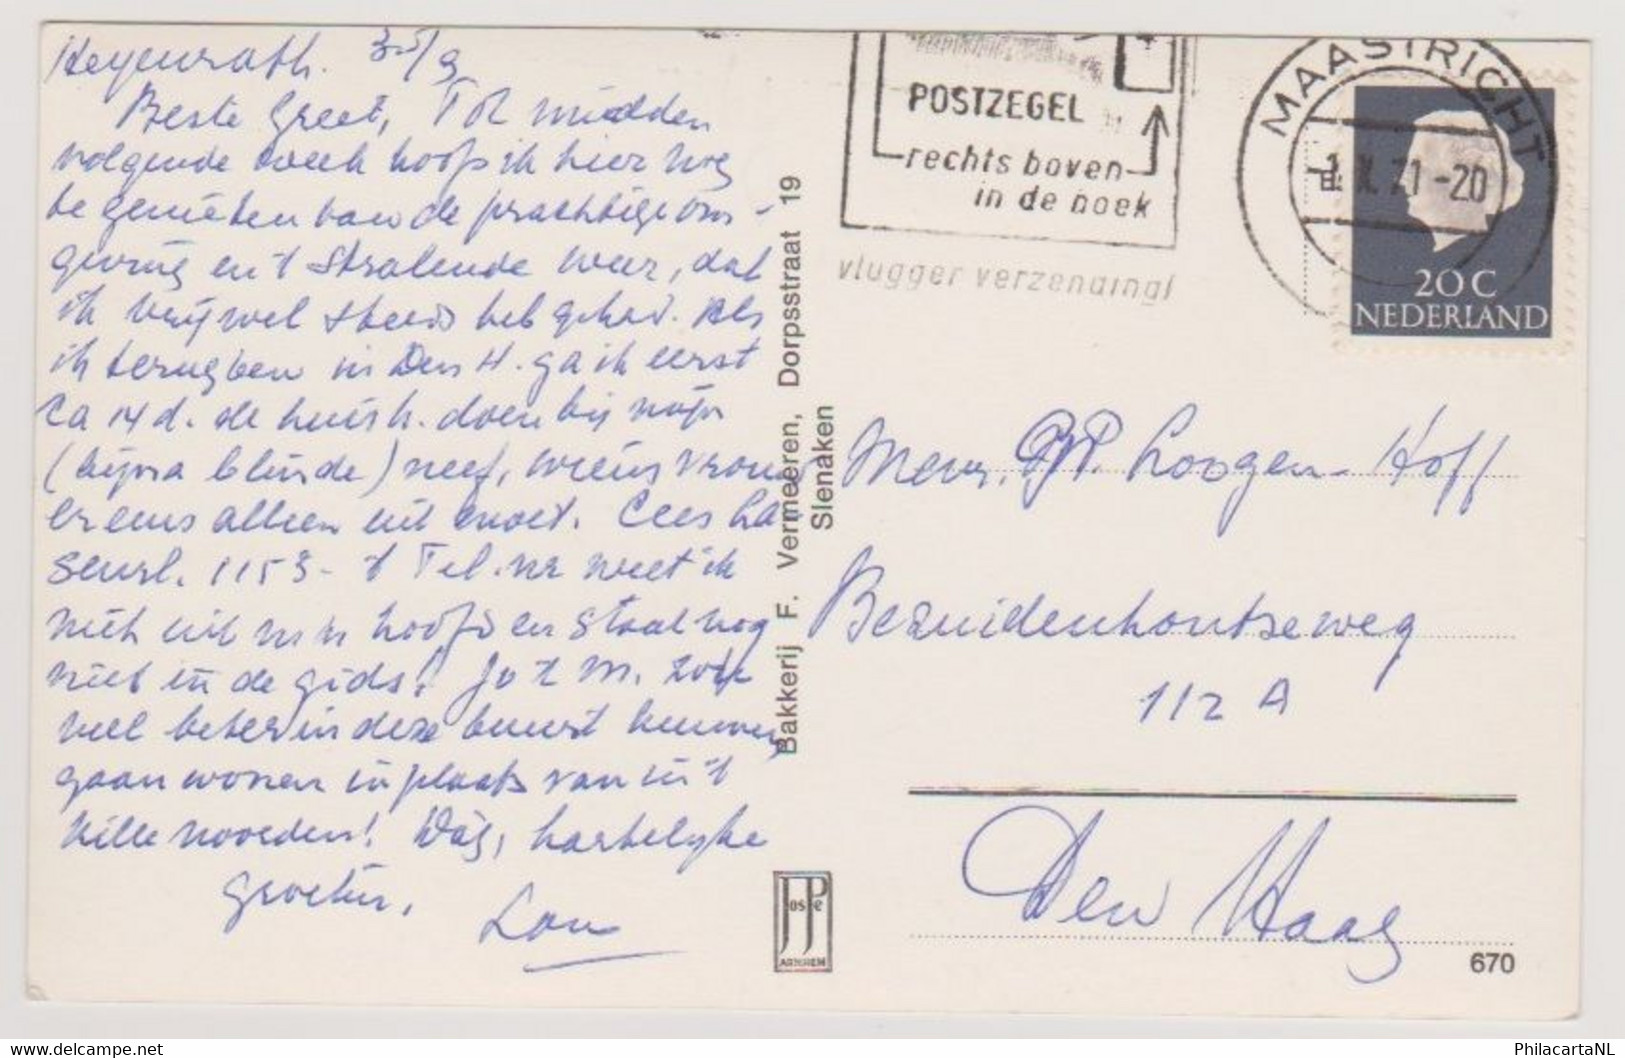 Heyenrath. 30/9
Beste Greet, Tot midden
volgende week hoop ik hier nog
te genieten van de prachtige om-
geving en 't stralende weer, dat
ik vrijwel steeds heb gehad. Als
ik terug ben in Den H. ga ik eerst
ca 14 d. de huish. doen bij mijn
(bijna blinde) neef, wiens vrouw
er eens alleen uit moet. Cees La-
seurl. 1153 - 't Tel. nr weet ik
niet uit m'n hoofd en staat nog
niet in de gids! Jo 't M. zou
veel beter in deze buurt kunnen
gaan wonen in plaats van in 't
kille noorden! Dàg, hartelijke
groeten,
Lou
Bakkerij F. Vermeeren, Dorpsstraat 19
Slenaken
JosPé
ARNHEM
POSTZEGEL
rechts boven
in de hoek
vlugger verzending!
MAASTRICHT
1.X.71-20
20 C
NEDERLAND
Mevr. Loogen-Hoff
Bezuidenhoutseweg
112 A
Den Haag
670
delcampe.net
PhilacartaNL